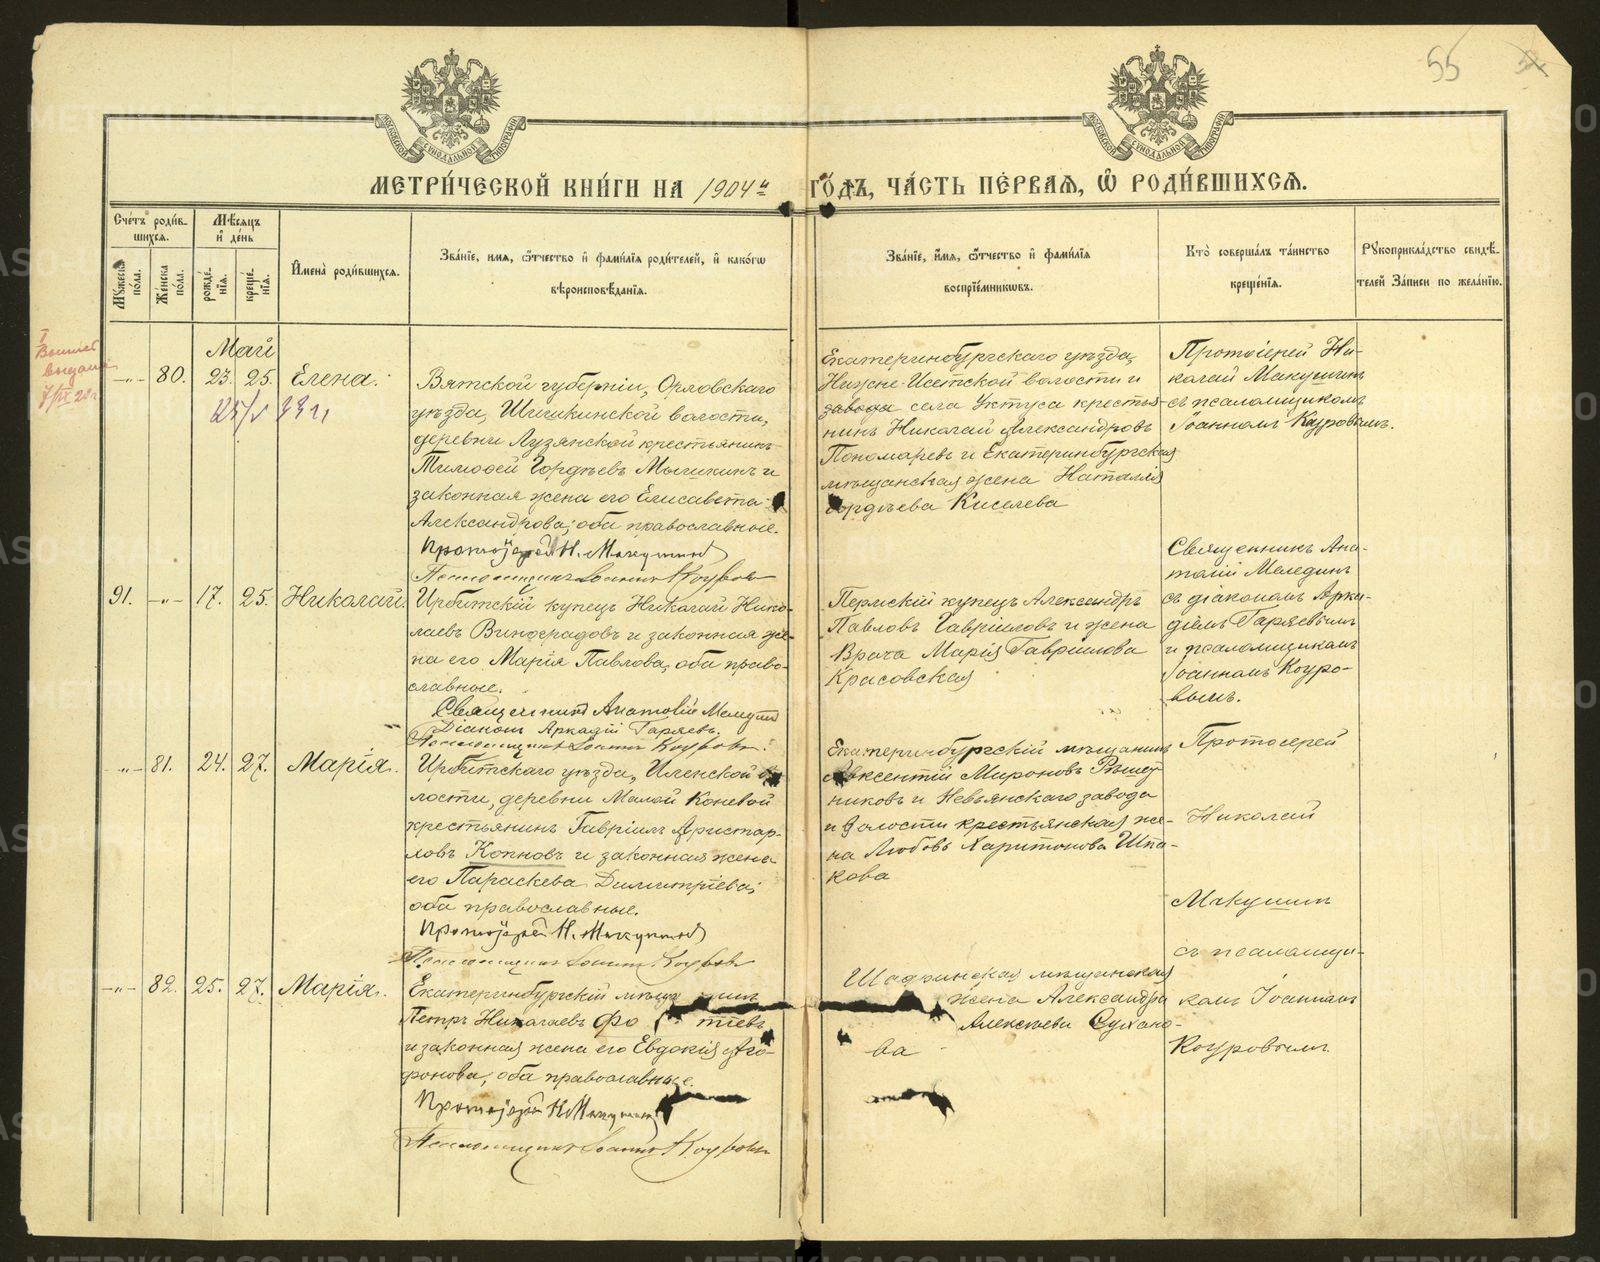 55
МОСКОВСКОЙ СѴНОДАЛЬНОЙ ТИПОГРАФІИ
МОСКОВСКОЙ СѴНОДАЛЬНОЙ ТИПОГРАФІИ
МЕТРИ́ЧЕСКОЙ КНИ́ГИ НА 1904й ГО́ДЪ, ЧА́СТЬ ПЕ́РВАЯ, Ѡ РОДИ́ВШИХСЯ.
Сче́тъ роди́вшихся.
Мѣсяцъ и де́нь
Му́жеска по́ла.
Же́нска по́ла.
рожде́нія.
креще́нія.
Имена̀ роди́вшихся.
Зва́ніе, имя, ѻтчество и фами́лія роди́телей, и како́гѡ вѣроисповѣ́данія.
Зва́ніе, имя, ѻтчество и фами́лія воспріе́мниковъ.
Кто̀ соверша́лъ та́инство креще́нія.
Рукоприкла́дство свидѣ́телей за́писи по жела́нію.
Май
-„- 80. 23. 25. Елена.
25/V 33 г
Вятской губерніи, Орловскаго
уѣзда, Шишкинской волости,
деревни Лузянской крестьянинъ
Тимоѳей Гордѣевъ Мышкинъ и
законная жена его Елисавета
Александрова; оба православные.
Протоіерей Н. Макушинъ
Псаломщикъ Іоаннъ Коуровъ
Екатеринбургскаго уѣзда,
Нижне-Исетской волости и
завода села Уктуса крестья-
нинъ Николай Александровъ
Пономаревъ и Екатеринбургская
мѣщанская жена Наталія
Гордѣева Киселева
Протоіерей Ни-
колай Макушинъ
съ псаломщикомъ
Іоанномъ Коуровымъ.
91. -„- 17. 25. Николай.
Ирбитскій купецъ Николай Нико-
лаевъ Виноградовъ и законная же-
на его Марія Павлова, оба право-
славные.
Священникъ Анатолій Мелединъ
Діаконъ Аркадій Гаряевъ.
Псаломщикъ Іоаннъ Коуровъ.
Пермскій купецъ Александръ
Павловъ Гавриловъ и жена
Врача Марія Гаврилова
Красовская
Священникъ Ана-
толій Мелединъ
съ діакономъ Арка-
діемъ Гаряевымъ
и псаломщикомъ
Іоанномъ Коуро-
вымъ.
-„- 81. 24. 27. Марія.
Ирбитскаго уѣзда, Иленской во-
лости, деревни Малой Коневой
крестьянинъ Гавріилъ Аристар-
ховъ Копновъ и законная жена
его Параскева Димитріева;
оба православные.
Протоіерей Н. Макушинъ
Псаломщикъ Іоаннъ Коуровъ
Екатеринбургскій мѣщанинъ
Авксентій Мироновъ Рѣшет-
никовъ и Невьянскаго завода
и волости крестьянская же-
на Любовь Харитонова Шпа-
кова
Протоіерей
Николай
Макушинъ
съ псаломщи-
комъ Іоанномъ
Коуровымъ
-„- 82. 25. 27. Марія.
Екатеринбургскій мѣща нинъ
Петръ Николаевъ Фо тіевъ
и законная жена его Евдокія Аго-
фонова; оба православные.
Протоіерей Н. Макушинъ
Псаломщикъ Іоаннъ Коуровъ
Шадринская мѣщанская
жена Александра
Алексѣева Сухано-
ва